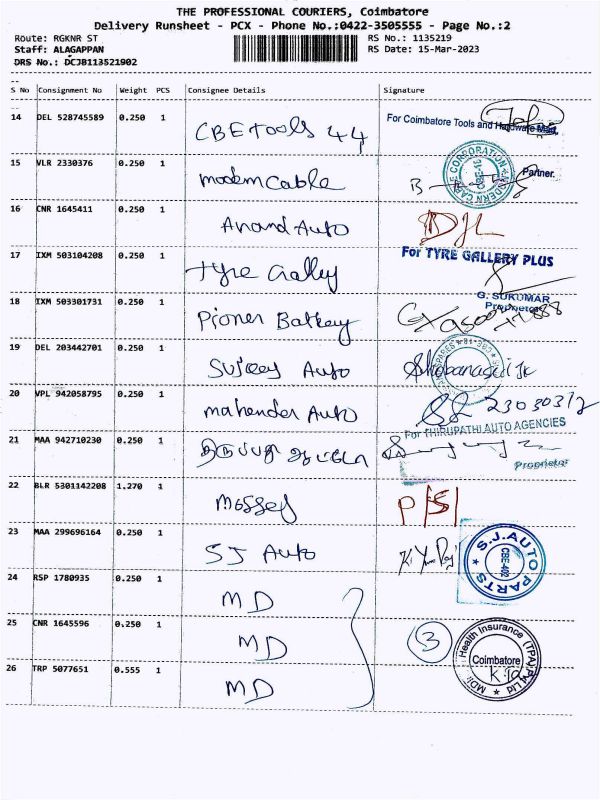 THE PROFESSIONAL COURIERS, Coimbatore
Delivery Runsheet - PCX - Phone No.:0422-3505555 - Page No.:2
Route: RGKNR ST RS No.: 1135219
Staff: ALAGAPPAN RS Date: 15-Mar-2023
DRS No.: DCJB113521902
S No Consignment No Weight PCS Consignee Details Signature
14 DEL 528745589 0.250 1 CBE Tools 44 For Coimbatore Tools and Hardware Mart
Partner.
15 VLR 2330376 0.250 1 modern Cable MODERN CABLE CORPORATION
16 CNR 1645411 0.250 1 Anand Auto
17 IXM 503104208 0.250 1 Tyre Galley For TYRE GALLERY PLUS
G. SUKUMAR
Proprietor
18 IXM 503301731 0.250 1 Pioner Battery
19 DEL 203442701 0.250 1 Sujeey Auto
20 VPL 942058795 0.250 1 mahender Auto
For THIRUPATHI AUTO AGENCIES
21 MAA 942710230 0.250 1
Proprietor
22 BLR 5301142208 1.270 1 mossey
23 MAA 299696164 0.250 1 SJ Auto S.J. AUTO PARTS CBE-402
24 RSP 1780935 0.250 1 MD
25 CNR 1645596 0.250 1 MD 3 MDI Health Insurance (TPA) Pvt Ltd
Coimbatore
26 TRP 5077651 0.555 1 MD